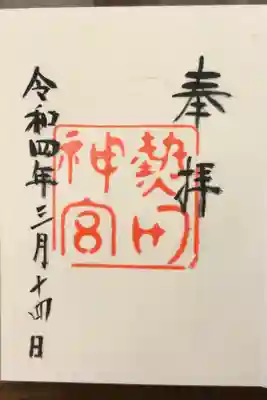 奉拝
熱田
神宮
令和四年三月十四日